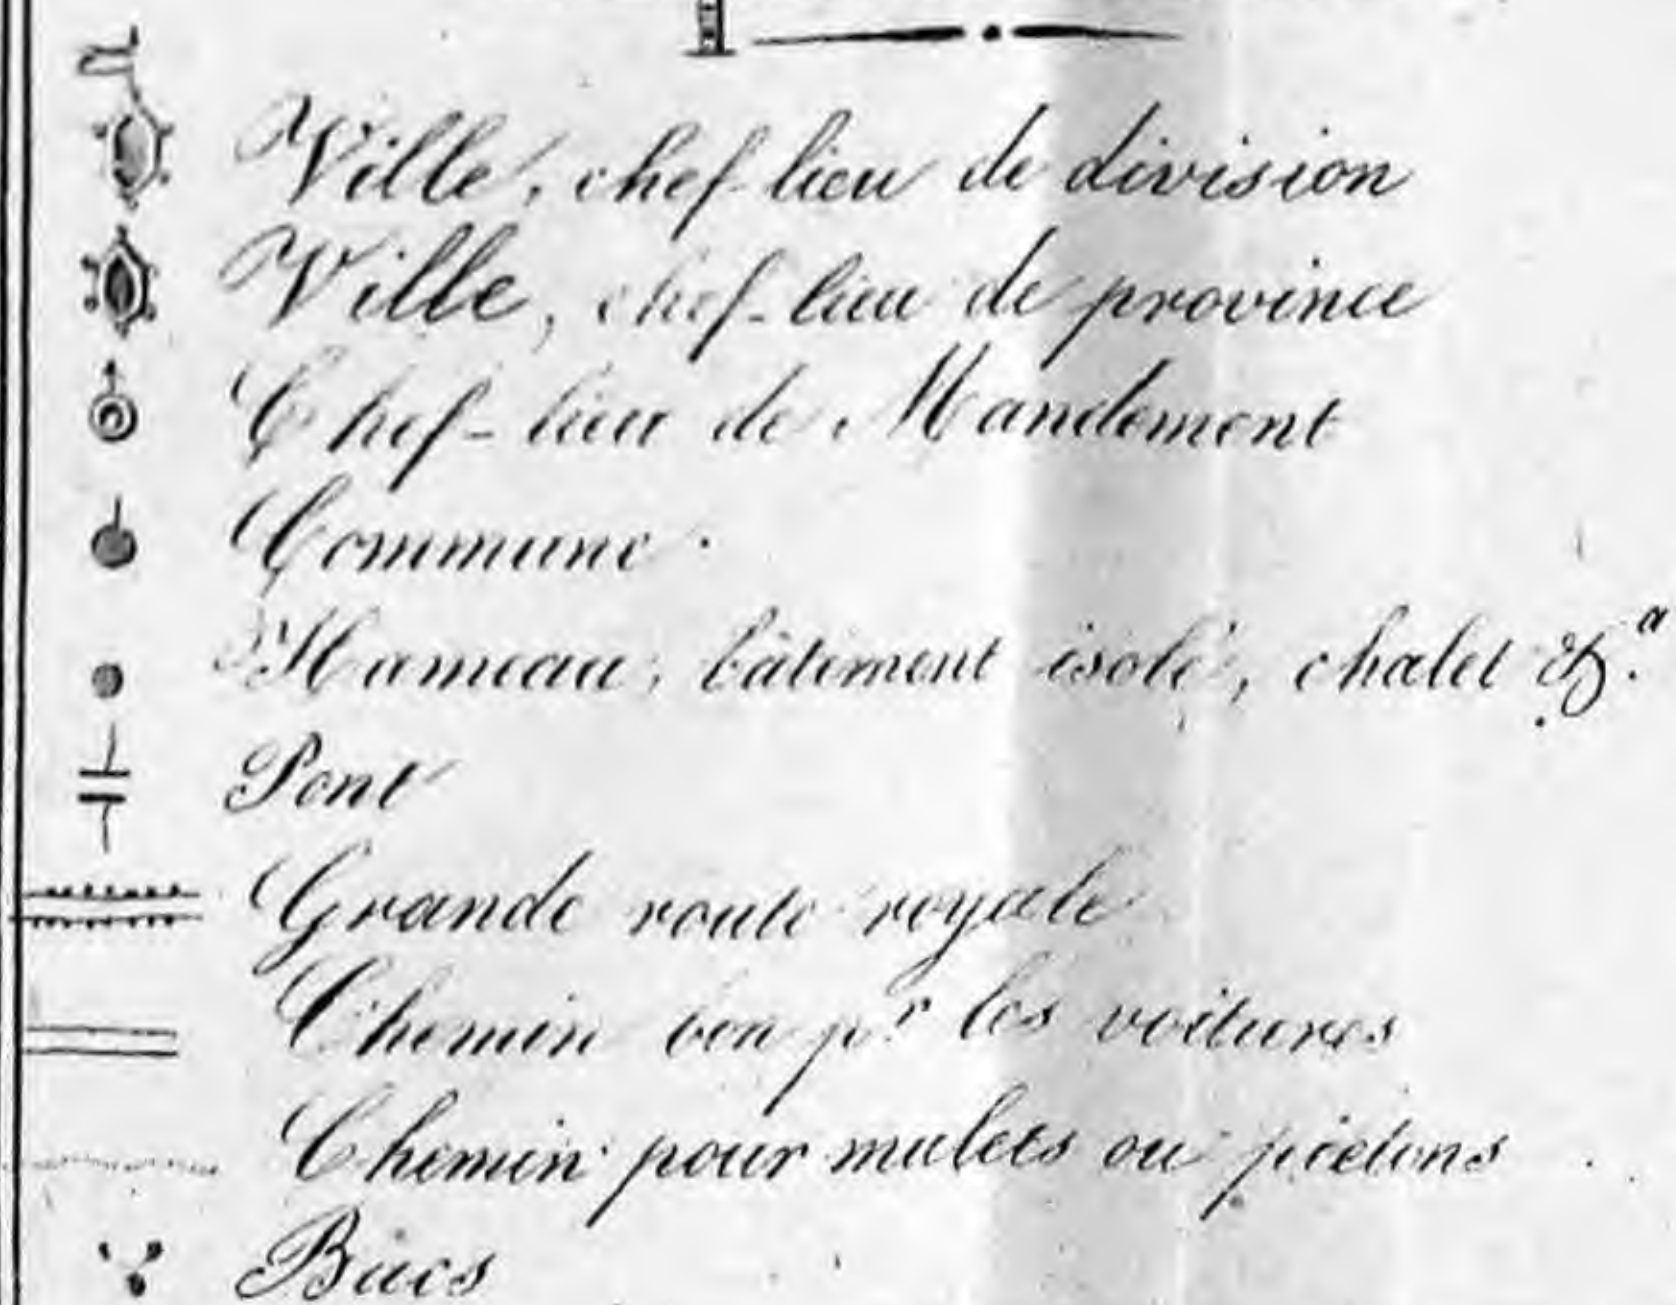 Ville, chef-lieu de division
Ville, chef-lieu de province
Chef-lieu de Mandement
Commune
Hameau, bâtiment isolé, chalet &.a
Pont
Grande route royale
Chemin bon p.r les voitures
Chemin pour mulets ou piétons
Bacs